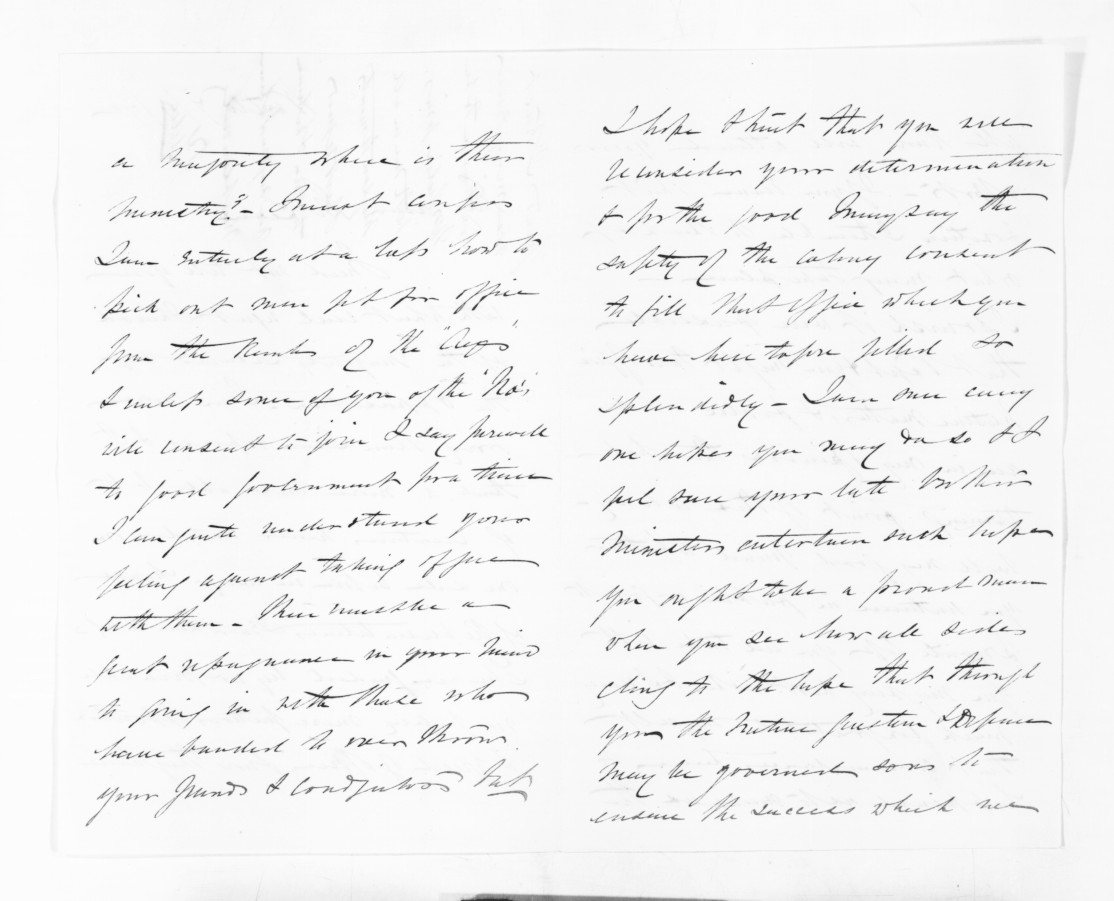 a majority where is their
Ministry? - I must confess
I am entirely at a loss how to
pick out men fit for office
from the Ranks of the "Ayes"
& unless some of you of the "No's
will consent to join I say farewell
to good government for a time
I can quite understand your
feeling against taking office
with them - There must be a
great repugnance in your mind
to going in with those who
have banded to over throw
your friends & Coadjutors but
I hope & trust that you will
reconsider your determination
& for the good I may say the
safety of the Colony consent
to fill that office which you
have here tofore filled so
splendidly - I am sure every
one hopes you may do so & I
feel sure your late brother
Ministers entertain such hope
You ought to be a proud man
when you see how all sides
cling to the hope that through
you the Native question & Defence
may be governed so as to
ensure the success which we